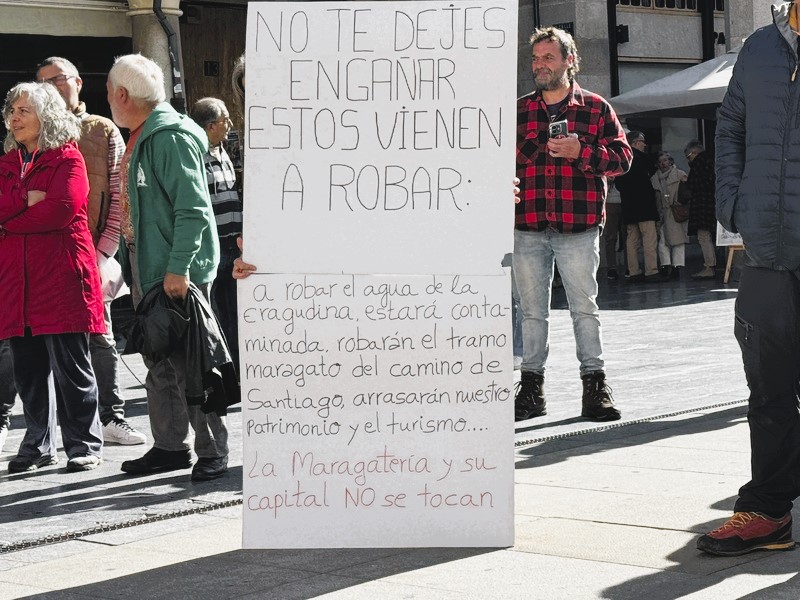 NO TE DEJES
ENGAÑAR
ESTOS VIENEN
A ROBAR:
a robar el agua de la
Eragudina, estará conta-
minada, robarán el tramo
maragato del camino de
Santiago, arrasarán nuestro
patrimonio y el turismo....
La Maragatería y su
capital NO se tocan